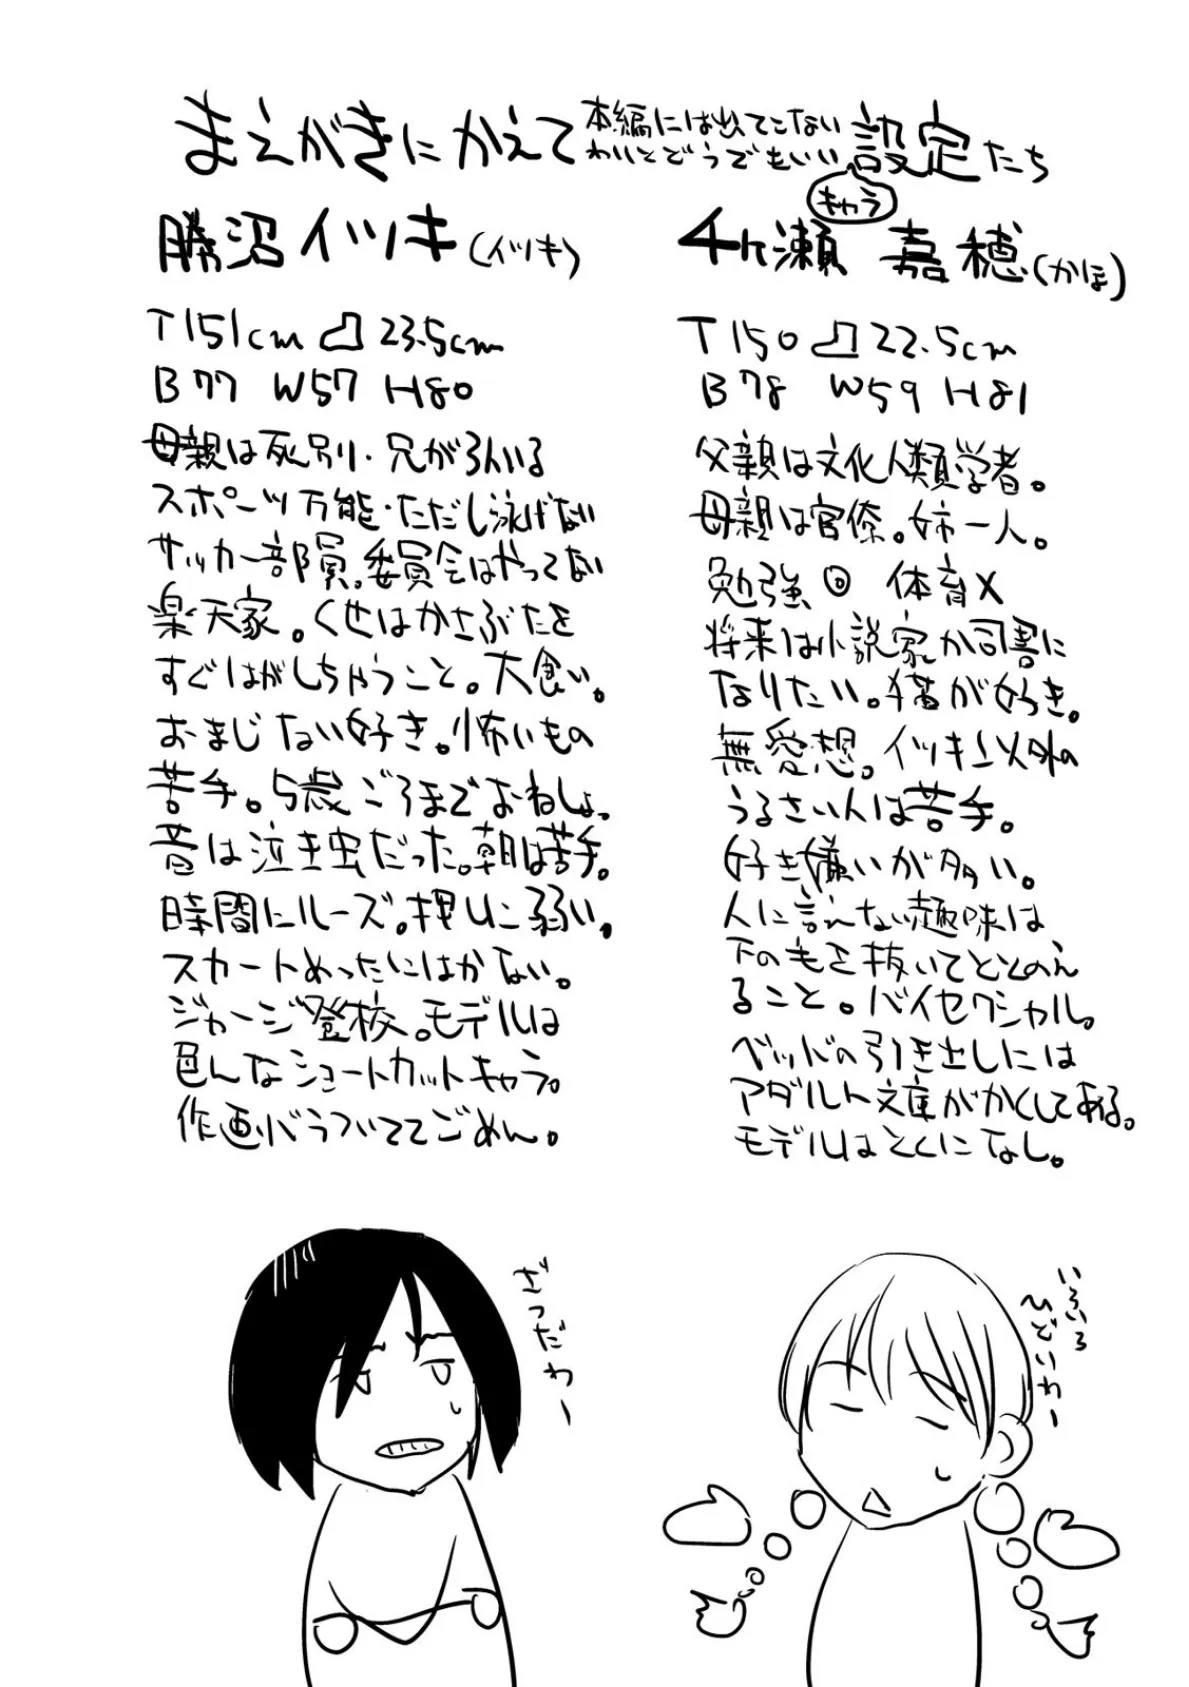 まえがきにかえて 本編には出てこない わりとどうでもいい 設定たち
キャラ
勝沼イツキ(イツキ)
T151cm 23.5cm
B77 W57 H80
母親は死別・兄が3人いる
スポーツ万能・ただし泳げない
サッカー部員。委員会はやってない
楽天家。くせはかさぶたを
すぐはがしちゃうこと。大食い。
おまじない好き。怖いもの
苦手。5歳ごろまでおねしょ。
昔は泣き虫だった。朝は苦手。
時間にルーズ。押しに弱い。
スカートめったにはかない。
ジャージ登校。モデルは
色んなショートカットキャラ。
作画バラついててごめん。
千ヶ瀬 嘉穂(かほ)
T150 22.5cm
B78 W59 H81
父親は文化人類学者。
母親は官僚。姉一人。
勉強◎ 体育×
将来は小説家か司書に
なりたい。猫が好き。
無愛想。イツキ以外の
うるさい人は苦手。
好き嫌いが多い。
人に言えない趣味は
下の毛を抜いてととのえ
ること。バイセクシャル。
ベッドの引き出しには
アダルト文庫がかくしてある。
モデルはとくになし。
ざつだわー
いろいろ
ひどいわー